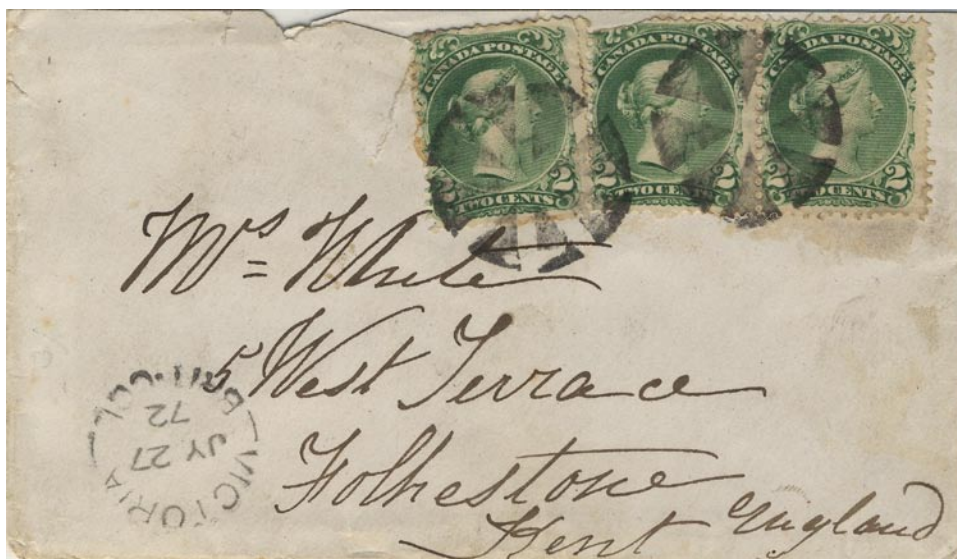 CANADA POSTAGE
2 2
TWO CENTS
CANADA POSTAGE
2 2
TWO CENTS
CANADA POSTAGE
2 2
TWO CENTS
Mrs White
5 West Terrace
Folkestone
Kent England
VICTORIA
JY 27
72
BRIT. COL